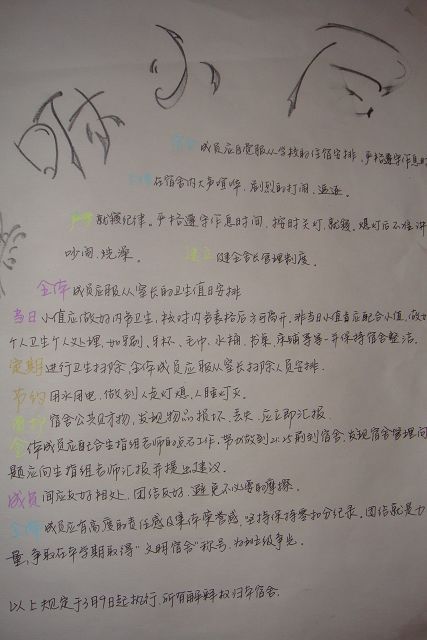 成员应自觉服从学校的住宿安排，严格遵守作息时
在宿舍内大声喧哗，剧烈的打闹、追逐。
就寝纪律。严格遵守作息时间，按时关灯，就寝，熄灯后不准讲
吵闹、洗澡。 建立健全舍长管理制度。
全体成员应服从室长的卫生值日安排
当日小值应做好内务卫生，核对内务表格后方可离开，非当日小值者应配合小值，做好
个人卫生个人处理，如牙刷、牙杯、毛巾、水桶、书桌、床铺等等一并保持宿舍整洁。
定期进行卫生扫除，全体成员应服从室长扫除人员安排。
节约用水用电，做到人走灯熄，人睡灯灭。
宿舍公共财物，发现物品损坏、丢失，应立即汇报。
全体成员应配合生指组老师的点名工作，带头做到21:15前到宿舍，发现宿舍管理问
题应向生指组老师汇报并提出建议。
成员间应友好相处，团结友好，避免不必要的摩擦。
全体成员应有高度的责任感及集体荣誉感，坚持保持零扣分纪录。团结就是力
量，争取在本学期取得“文明宿舍”称号，为班级争光。
以上规定于3月9日起执行，所有解释权归本宿舍。